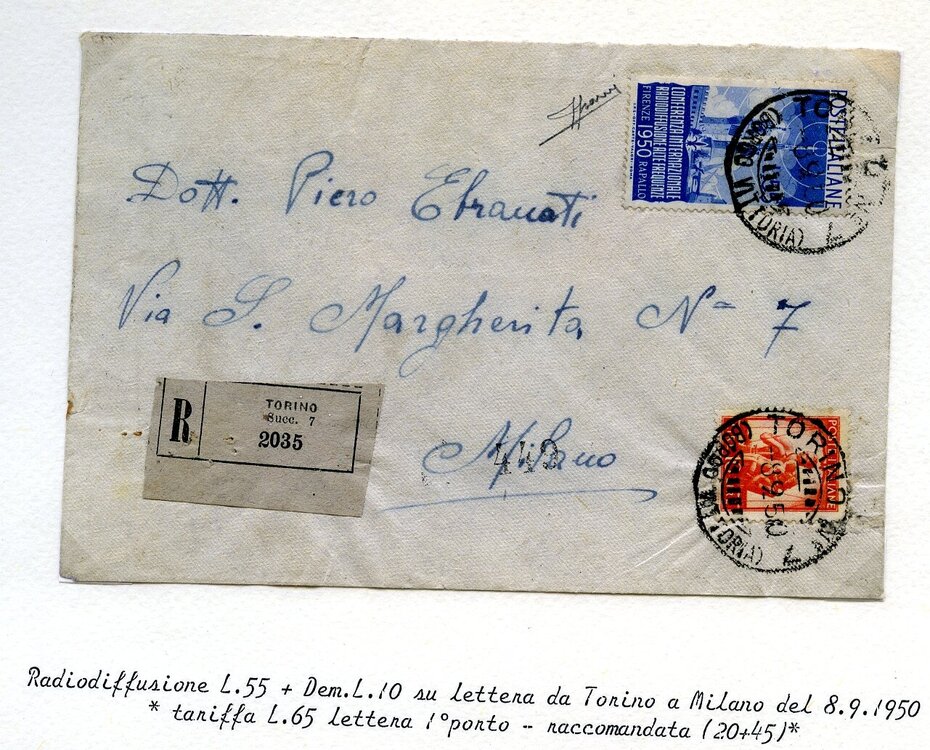 POSTE ITALIANE
CONFERENZA INTERNAZIONALE
RADIODIFFUSIONE ALTE FREQUENZE
FIRENZE 1950 RAPALLO
Dott. Piero Ebranati
Via S. Margherita Nº 7
R
TORINO
Succ. 7
2035
Milano
TORINO
8 9 50
Radiodiffusione L.55 + Dem.L.10 su lettera da Torino a Milano del 8.9.1950
* tariffa L.65 lettera 1° porto - raccomandata (20+45)*